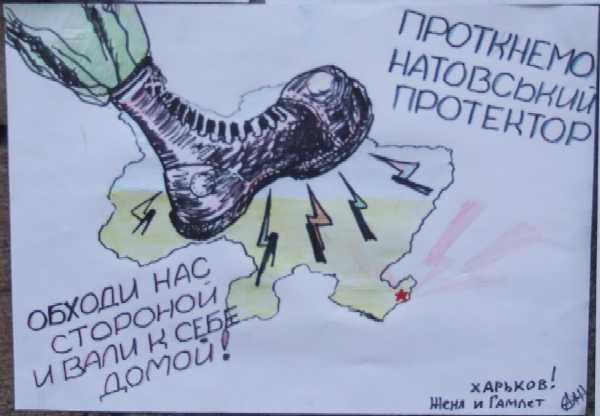 ПРОТКНЕМО
НАТОВСЬКИЙ
ПРОТЕКТОР
ОБХОДИ НАС
СТОРОНОЙ
И ВАЛИ К СЕБЕ
ДОМОЙ!
ХАРЬКОВ!
ЖЕНЯ И ГАМЛЕТ